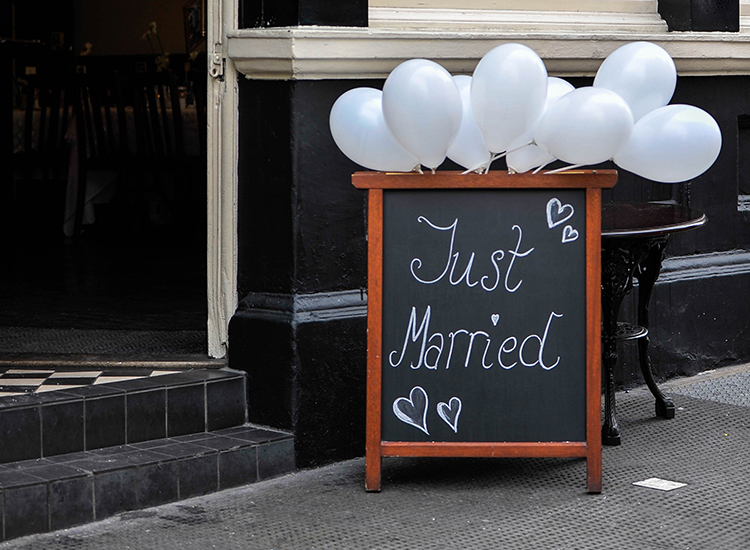 Just
Married